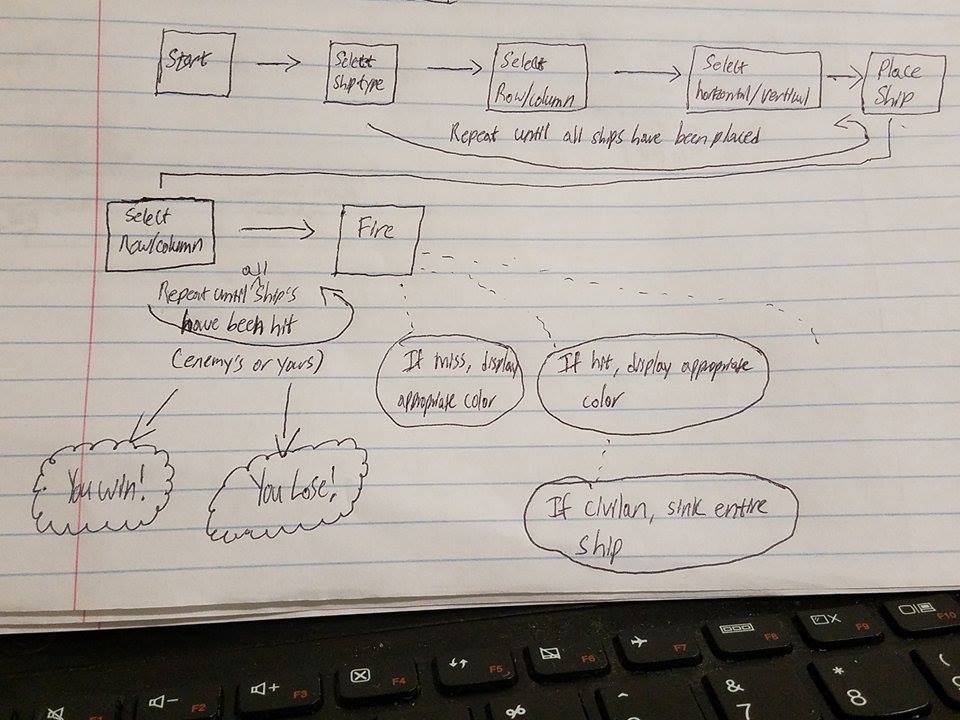 Start
Select
Ship type
Select
Row/column
Select
horizontal/vertical
Place
Ship
Repeat until all ships have been placed
Select
Row/column
Fire
all
Repeat until ship's
have been hit
(enemy's or yours)
If miss, display
appropriate color
If hit, display appropriate
color
You win!
You Lose!
If civilan, sink entire
ship
F1
F2
F3
F4
F5
F6
F7
F8
F9
F10
%
^
&
7
*
8
(